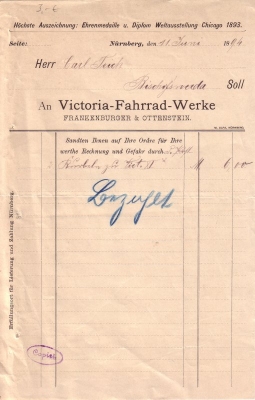 3,-€
Höchste Auszeichnung: Ehrenmedaille u. Diplom Weltausstellung Chicago 1893.
Seite: Nürnberg, den 11 Juni 1896
Herr Carl
Bischofswerda Soll
An Victoria-Fahrrad-Werke
FRANKENBURGER & OTTENSTEIN.
Sandten Ihnen auf Ihre Ordre für Ihre
werthe Rechnung und Gefahr durch Post
M
Bezahlt
Erfüllungsort für Lieferung und Zahlung Nürnberg.